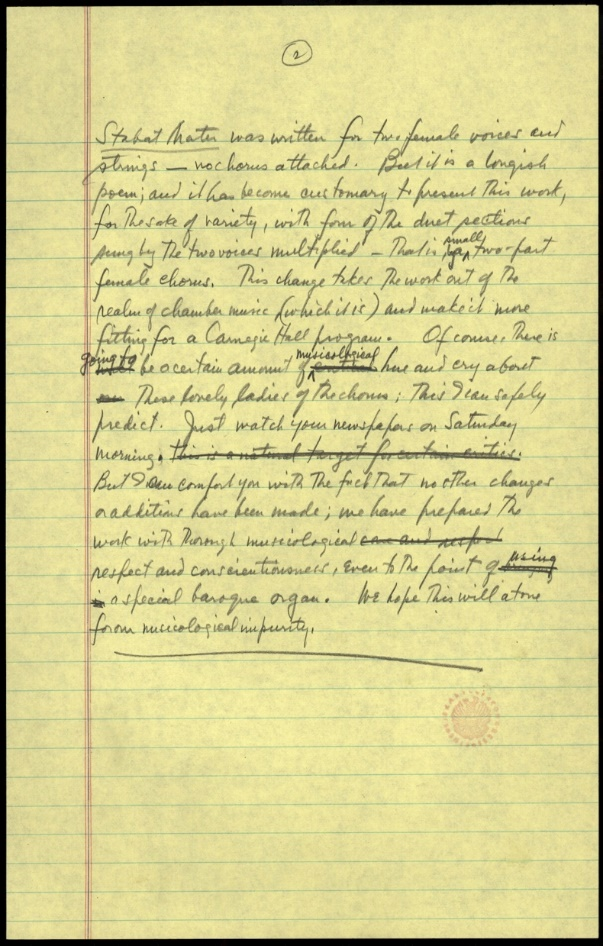 2
Stabat Mater was written for two female voices and
strings — no chorus attached. But it is a longish
poem; and it has become customary to present this work,
for the sake of variety, with four of the duet sections
sung by the two voices multiplied — that is, a small two-part
female chorus. This change takes the work out of the
realm of chamber music (which it is) and makes it more
fitting for a Carnegie Hall program. Of course, there is
going to be a certain amount of musicological hue and cry about
these lovely ladies of the chorus; this I can safely
predict. Just watch your newspapers on Saturday
morning. this is a natural target for certain critics.
But I can comfort you with the fact that no other changes
or additions have been made; we have prepared the
work with thorough musicological care and respect
respect and conscientiousness, even to the point of using
a special baroque organ. We hope this will atone
for our musicological impurity.